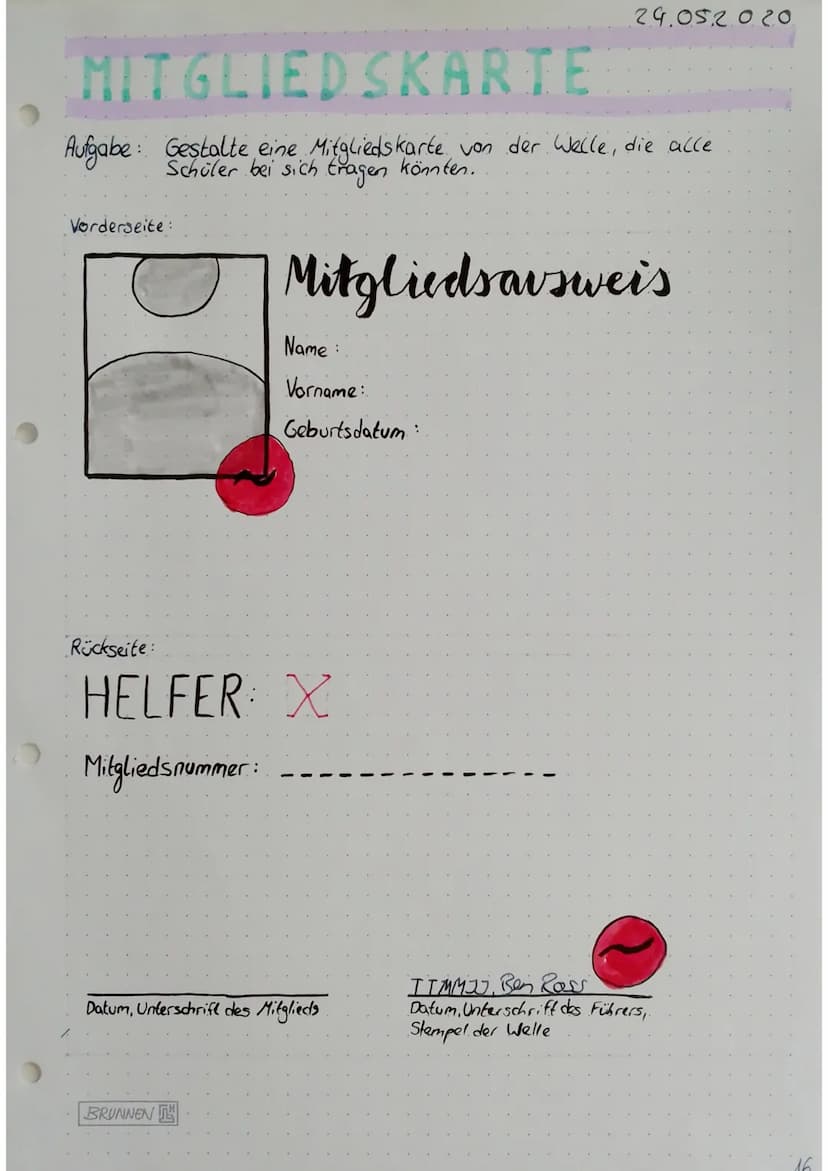 29.05.2020
MITGLIEDSKARTE
Aufgabe: Gestalte eine Mitgliedskarte von der Welle, die alle
Schüler bei sich tragen könnten.
Vorderseite:
Mitgliedsausweis
Name:
Vorname:
Geburtsdatum:
Rückseite:
HELFER: X
Mitgliedsnummer: _ _ _ _ _ _ _ _ _ _ _ _ _ _
TTMMJJ, Ben Ross
Datum, Unterschrift des Mitglieds
Datum, Unterschrift des Führers,
Stempel der Welle
BRUNNEN
16